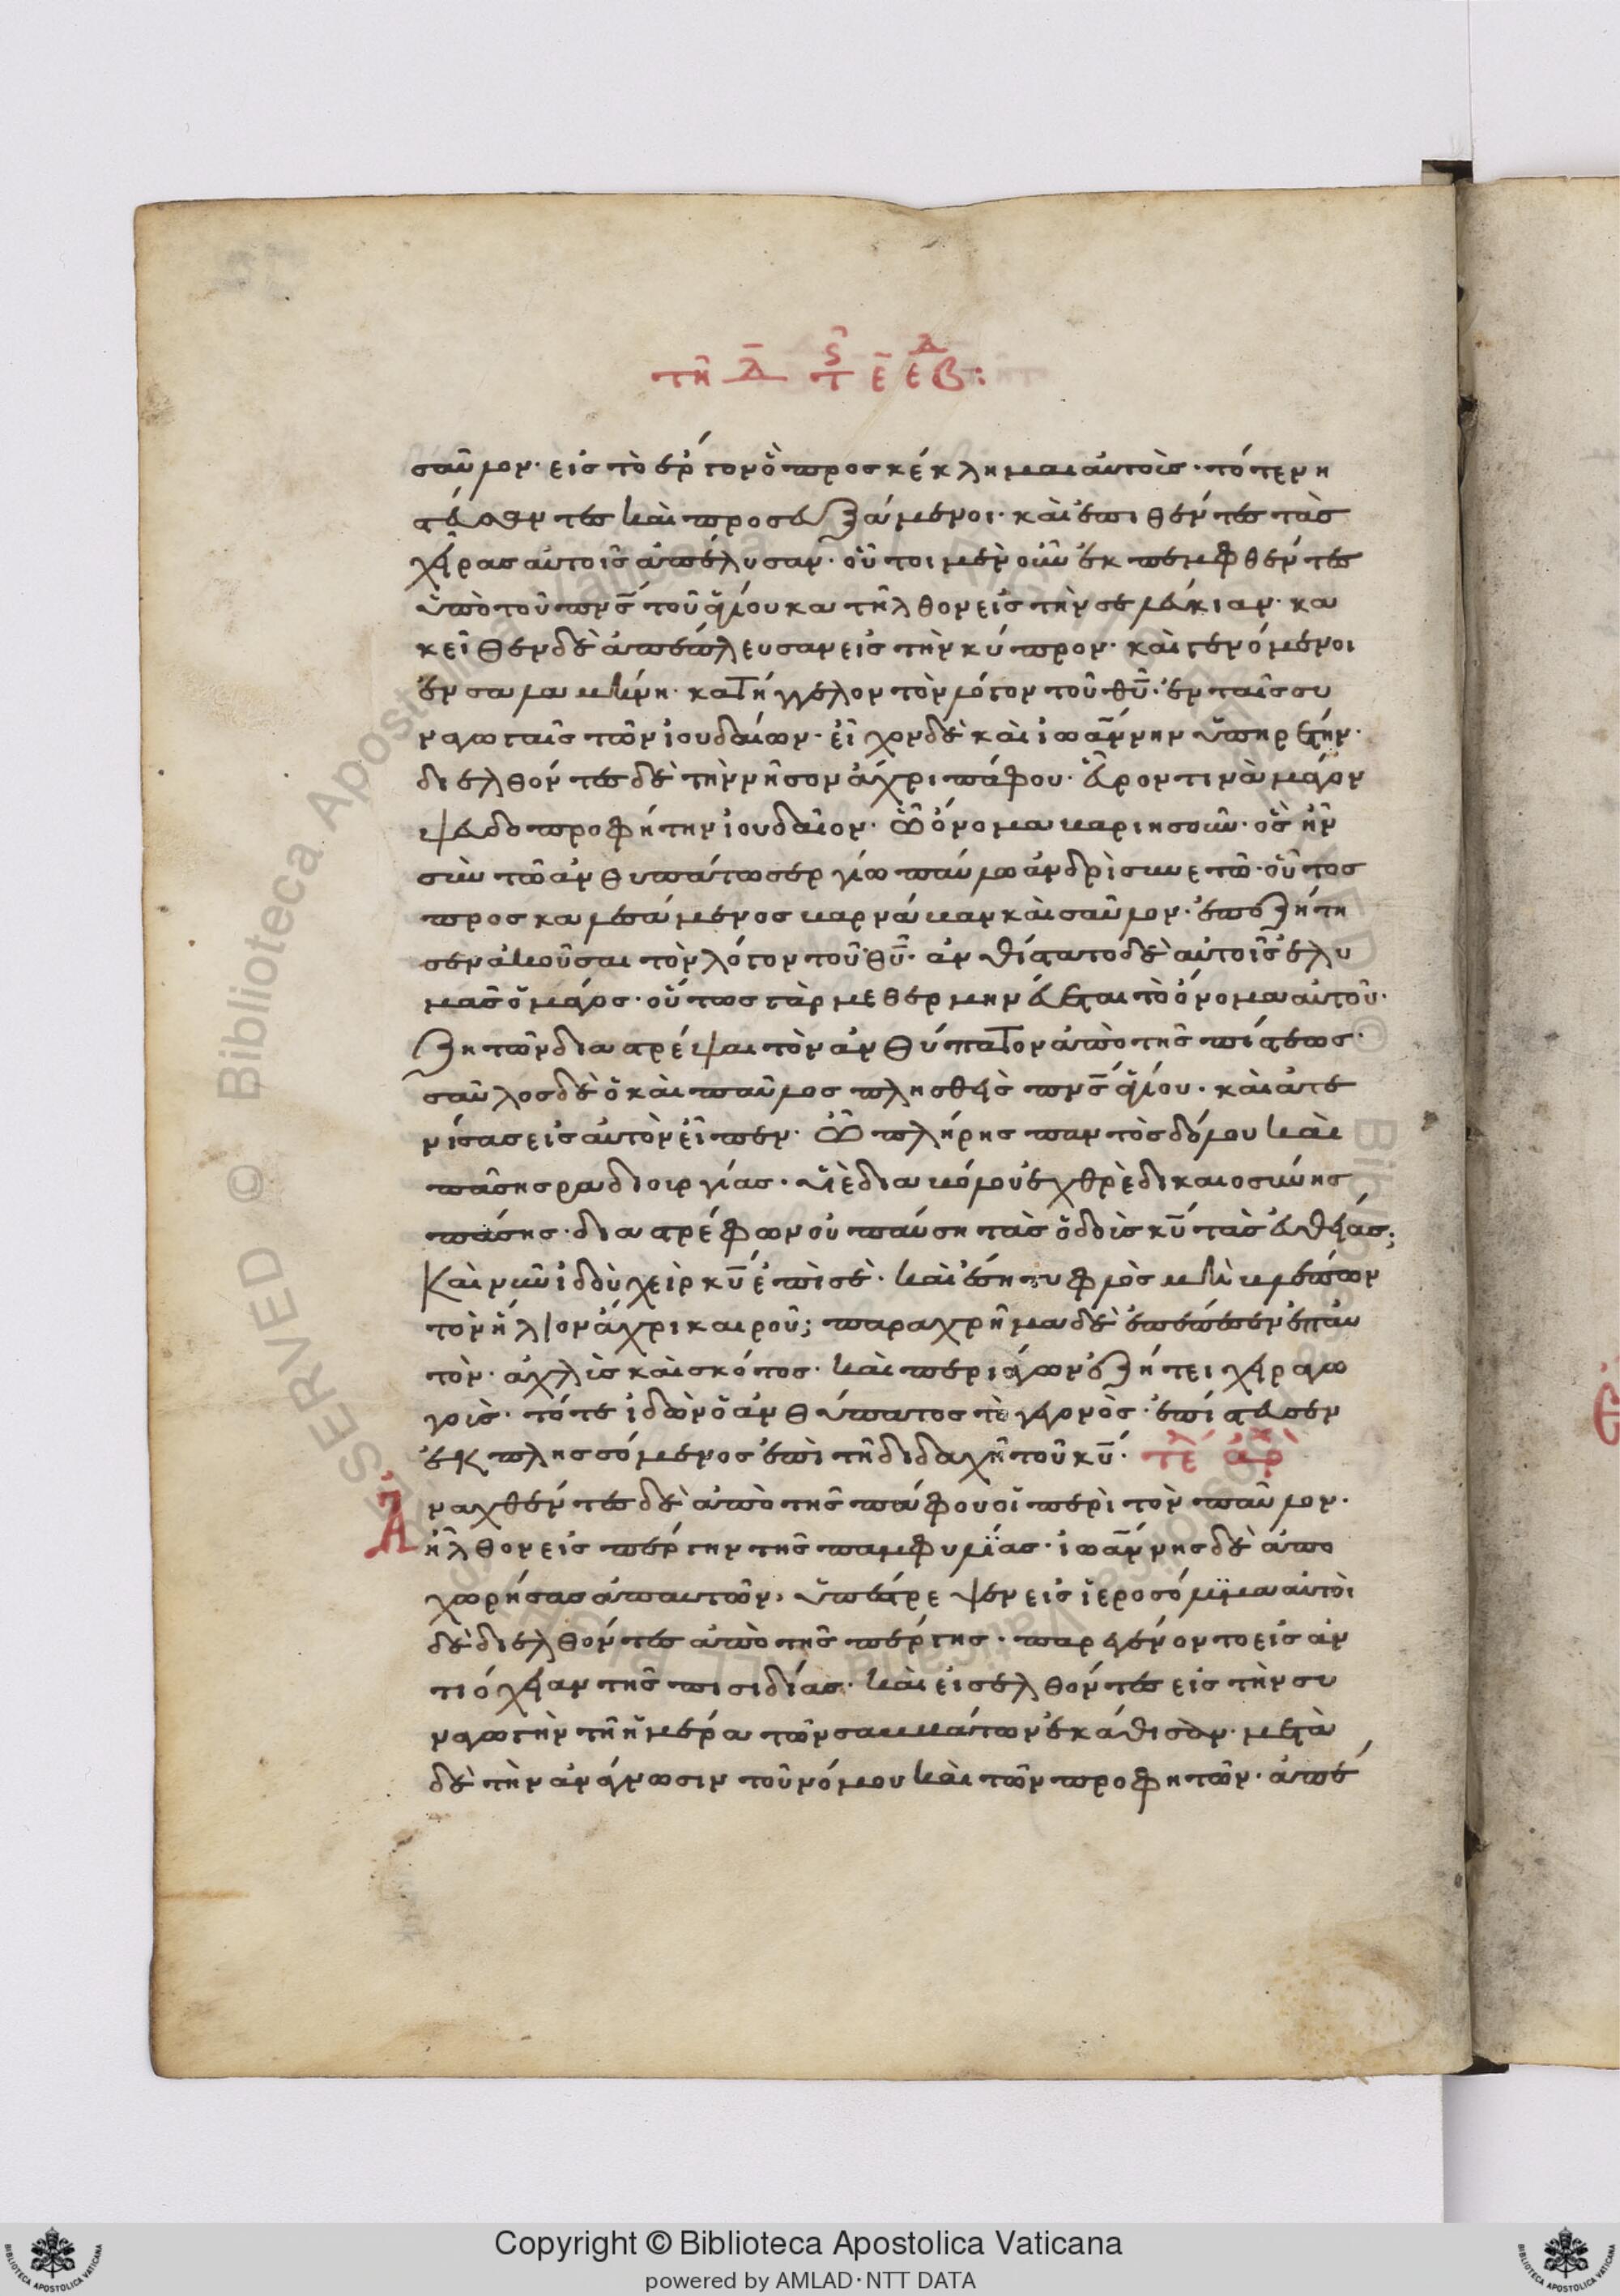 τῆ Δ̅ τ ς̑ ε̅ ε̅ Δ β:
σαῦλον· εἰς τὸ ἔργον ὃ προσκέκλημαι αὐτοὺς· τότε νη
στεύσαντες καὶ προσευξάμενοι· καὶ ἐπιθέντες τὰς
χεῖρας αὐτοῖς ἀπέλυσαν· οὗτοι μὲν οὖν ἐκπεμφθέντες
ὑπὸ τοῦ πν̅ς τοῦ ἁγίου κατῆλθον εἰς τὴν σελεύκιαν· κα
κεῖθεν δὲ ἀπέπλευσαν εἰς τὴν κύπρον· καὶ γενόμενοι
ἐν σαλαμίνη· κατήγγελον τὸν λόγον τοῦ θυ̅· ἐν ταῖς συ
ναγωγαῖς τῶν ἰουδαίων· εἶχον δὲ καὶ ἰωάννην ὑπηρέτην·
διελθόντες δὲ τὴν νῆσον ἄχρι πάφου· εὗρον τινὰ μάγον
ψευδοπροφήτην ἰουδαῖον· ὧ ὄνομα βαριησοῦν· ὃς ἦν
σὺν τῶ ἀνθυπάτω σεργίω παύλω ἀνδρὶ συνετῶ· οὗτος
προσκαλεσάμενος βαρνάβαν καὶ σαῦλον· ἐπεζήτη
σεν ἀκοῦσαι τὸν λόγον τοῦ θυ̅· ἀνθίστατο δὲ αὐτοῖς ἐλυ
μᾶς ὁ μάγος· οὕτως γὰρ μεθερμηνεύεται τὸ ὄνομα αὐτοῦ·
ζητῶν διαστρέψαι τὸν ἀνθύπατον ἀπὸ τῆς πίστεως·
σαῦλος δὲ ὁ καὶ παῦλος πλησθεὶς πν̅ς ἁγίου· καὶ ἀτε
νίσας εἰς αὐτὸν εἶπεν· ὦ πλήρης παντὸς δόλου καὶ
πάσης ραδιουργίας· υἱὲ διαβόλου ἐχθρὲ δικαιοσύνης
πάσης· διαστρέφων οὐ παύση τὰς ὁδοὺς κυ̅ τὰς εὐθείας;
Καὶ νῦν ἰδοὺ χεὶρ κυ̅ ἐπὶ σὲ· καὶ ἔση τυφλὸς μὴ βλέπων
τὸν ἥλιον ἄχρι καιροῦ; παραχρῆμα δὲ ἐπέπεσεν ἐπ αὐ
τὸν· ἀχλὺς καὶ σκότος· καὶ περιάγων ἐζήτει χειραγω
γοὺς· τότε ἰδὼν ὁ ἀνθύπατος τὸ γεγονὸς· ἐπίστευσεν
ἐκπλησσόμενος ἐπὶ τῆ διδαχῆ τοῦ κυ̅· τὲλ ἀρχ
Ἀναχθέντες δὲ ἀπὸ τῆς πάφου οἱ περὶ τὸν παῦλον·
ἦλθον εἰς πέργην τῆς παμφυλίας· ἰωάννης δὲ ἀπο
χωρήσας ἀπ αυτῶν, ὑπέστρεψεν εἰς ἱεροσόλυμα αὐτοὶ
δὲ διελθόντες ἀπὸ τῆς πέργης· παρεγένοντο εἰς ἀν
τιόχειαν τῆς πισιδίας· καὶ εἰσελθόντες εἰς τὴν συ
ναγωγὴν τῆ ἡμέρα τῶν σαββάτων ἐκάθισαν· μετὰ
δὲ τὴν ἀνάγνωσιν τοῦ νόμου καὶ τῶν προφητῶν· ἀπέ
Copyright © Biblioteca Apostolica Vaticana
powered by AMLAD·NTT DATA